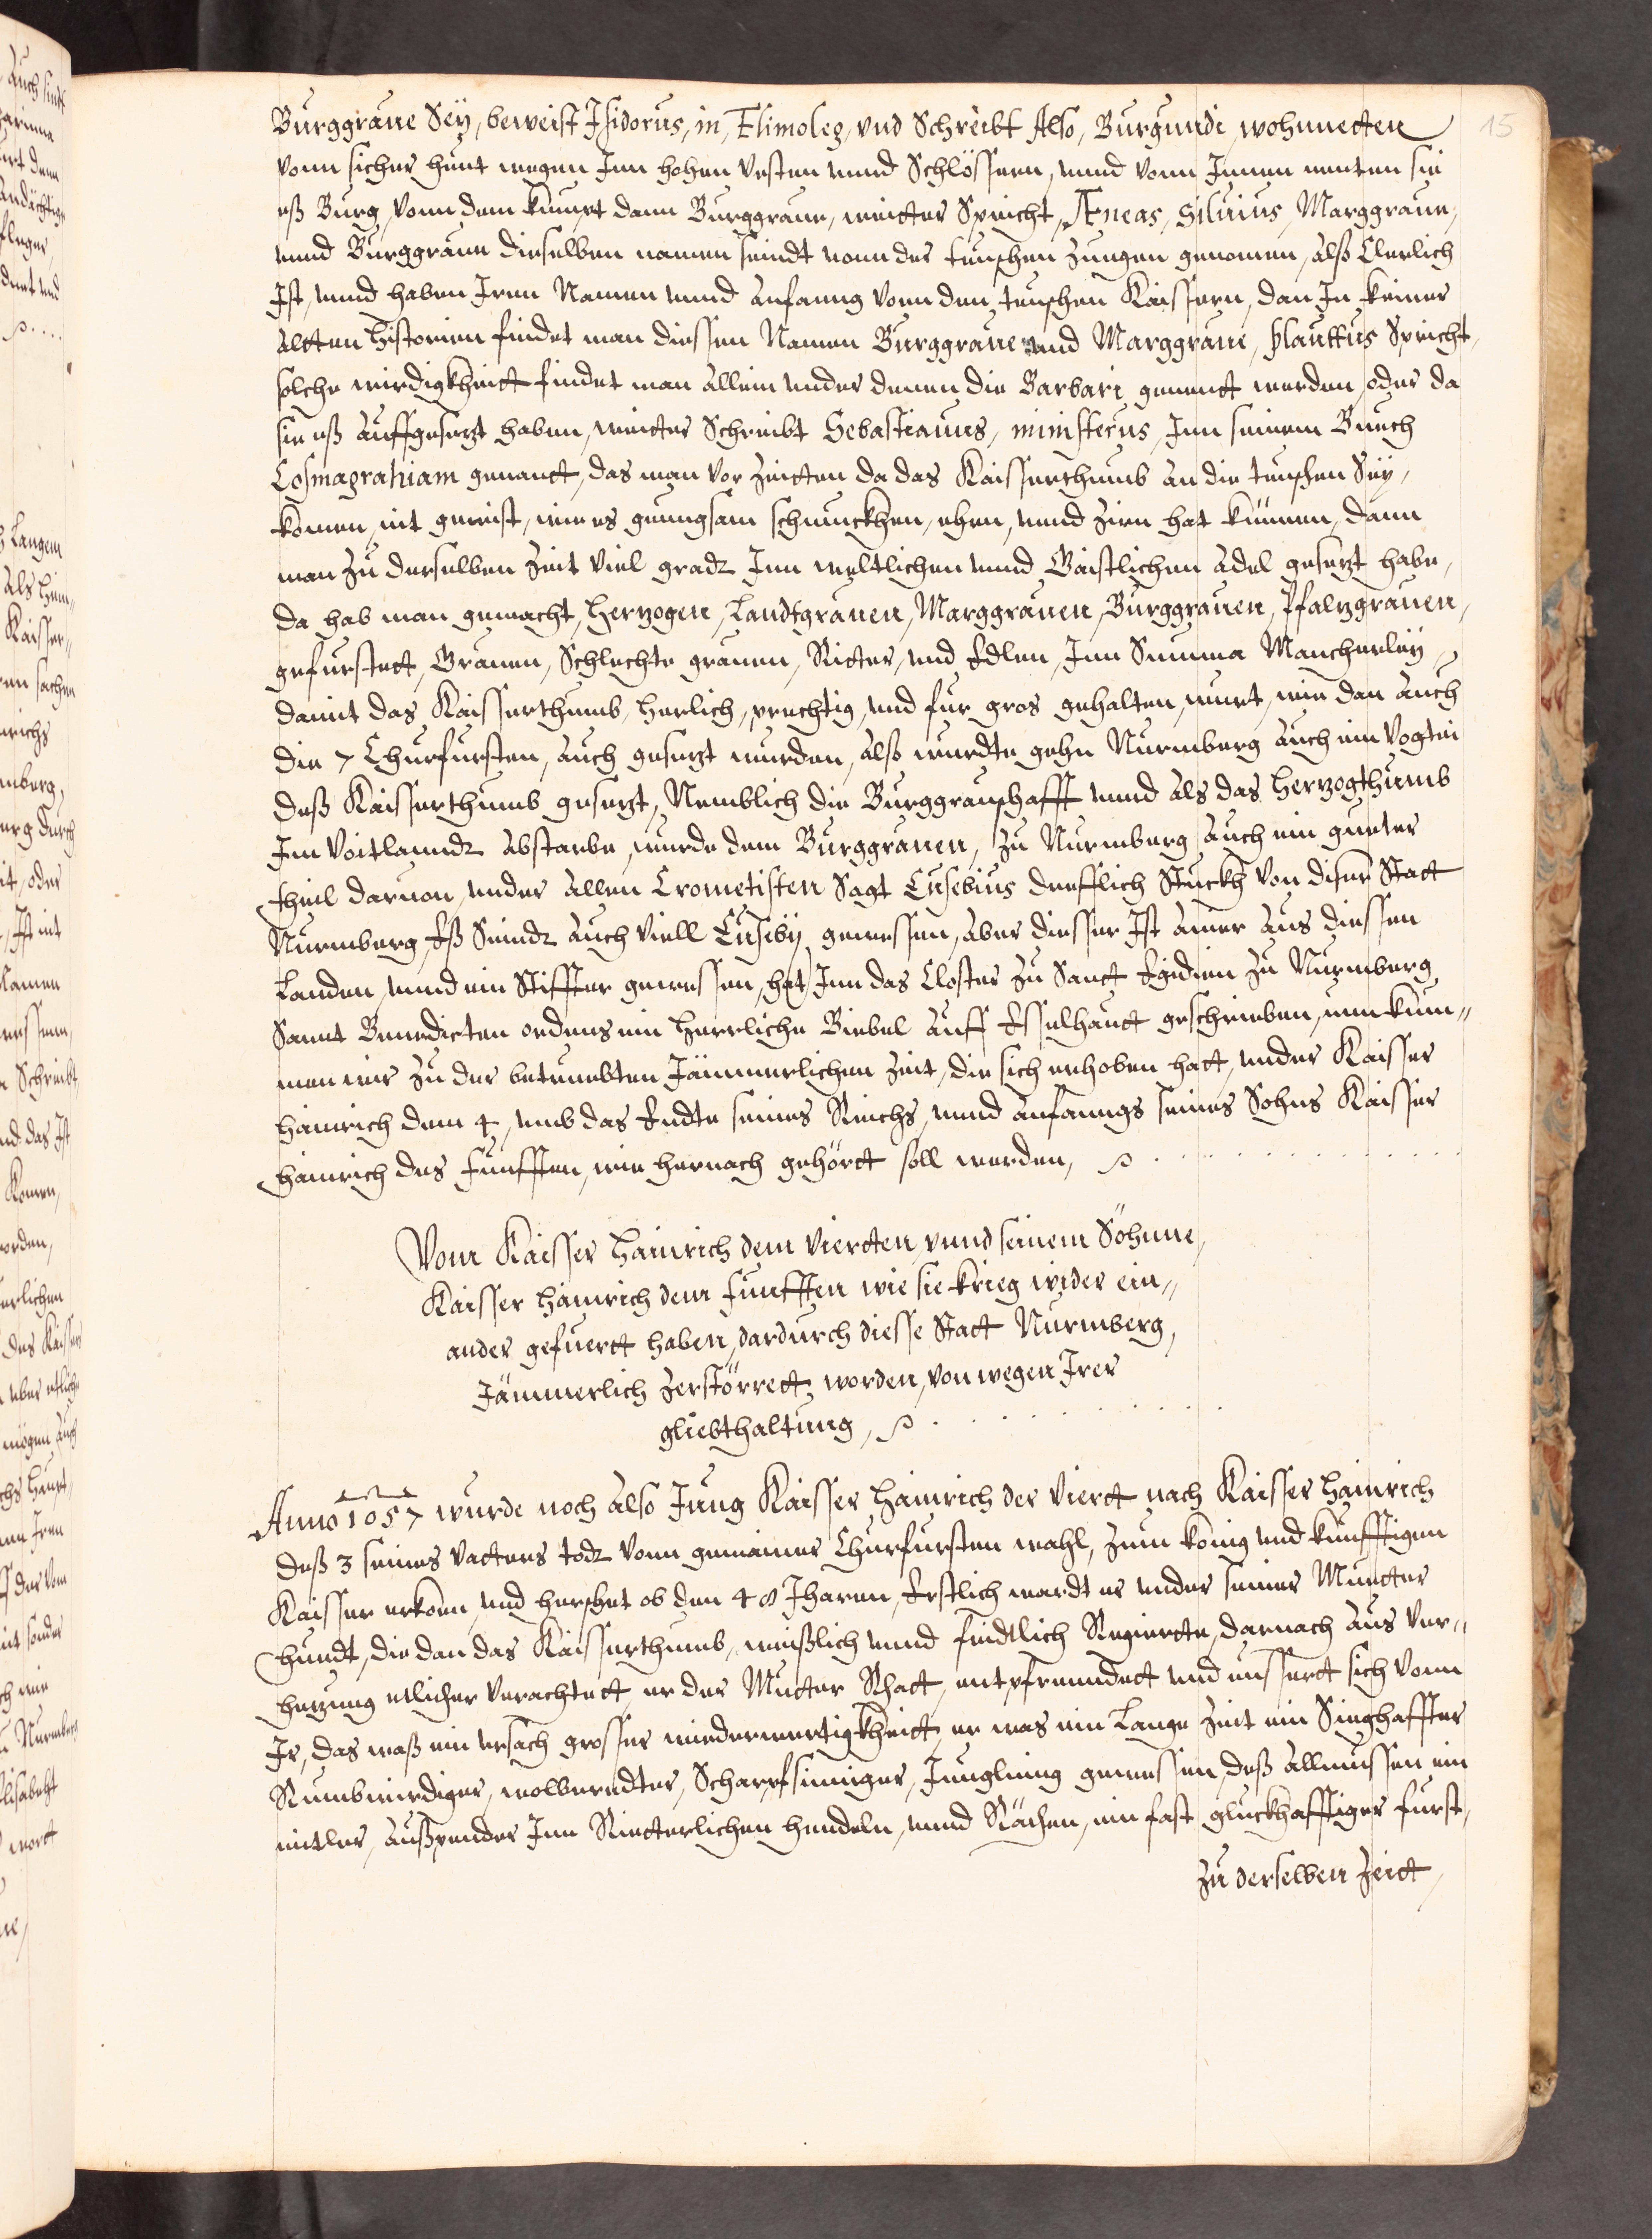 15
Burggraue Seÿ, beweist Isidorus, in, Etimoleg, vnd Schreibt Also, Burgundi, wohnnetten
vonn sicher heut wegen Inn hohen Vesten unnd Schlössern, unnd vonn Innen nenten sie
eß Burg, vonn dem kumpt dann Burggraue, weitter Spricht, Æneas, Siluius, Marggraue,
unnd Burggraue dieselben namen seindt vonn der teuschen Zungen genomen, alß Clerlich
Ist, unnd haben Iren Namen unnd Anfanng vonn den teuschen Kaissern, dan In keiner
Altten Historien findet man diessen Namen Burggraue und Marggraue, plauttus Spricht,
solche wirdigkheitt findet man Allein under denen die Barbari genendt werden, oder da
sie eß Auffgesezt haben, weitter Schreibt Sebastianus, ministerus, Inn seinem Buuch
Cosmagrahiam genandt, das man vor Zeitten da das Kaisserthumb an die teuschen Seÿ,
komen, nit gewist, wie es genugsam schmuckhen, ehren, unnd Ziern hat künnen, dann
man Zu derselben Zeit viel gradt Inn weltlichen unnd Gaistlichen Adel gesezt habe,
da hab man gemacht, Herzogen, Landtgrauen, Marggrauen, Burggrauen, Pfalzgrauen,
gefurstett, Grauen, Schlechte grauen, Ritter, und Edlen, Inn Summa Mancherleÿ,
damit das Kaisserthumb, Herlich, prechtig, und fur gros gehalten, wurt, wie dan Auch
die 7 Churfursten, Auch gesezt wurden, Alß wurdte gehn Nurmberg Auch ein Vogtei
deß Kaisserthumb gesezt, Nemblich die Burggrauschafft unnd Als das Herzogthumb
Im Voitlanndt Abstarbe, wurde dem Burggrauen, Zu Nurmberg Auch ein gueter
theil daruon, under Allen Crometisten Sagt Eusebius drefflich Stuckh von diser Statt
Nurmberg, Eß Seindt Auch Viell Eusebÿ gewessen, Aber diesser Ist Ainer Aus diessen
Landen, unnd ein Stiffter gewessen, hat Inn das Closter Zu Sanct Egidien Zu Nurmberg
Sannt Benedicten ordens ein Herrliche Biebel Auff Esselhautt geschrieben, nun kum„
men wir Zu der betruebten Jämmerlichen Zeit, die sich erhoben hatt, under Kaisser
Hainrich dem 4, umb das Endte seines Reichs, unnd Anfanngs seines Sohns Kaisser
Hainrich des Funfften, wie hernach gehörtt soll werden,
Vom Kaisser Hainrich dem Viertten, vnnd seinem Söhnne,
Kaisser Hainrich dem funfften wie sie krieg wider ein„
ander gefuertt haben, dardurch diesse Statt Nurmberg,
Jämmerlich Zerstörrett, worden, von wegen Irer
gliebthaltung,
Anno 1057 wurde noch Also Jung Kaisser Hainrich der Viertt nach Kaisser Hainrich
deß 3 seines Vatters todt vonn gemainer Churfursten wahl, Zum König und kunfftigen
Kaisser erkorn, und herschet ob den 48 Jharen, Erstlich wardt er under seiner Muetter
hundt, die dan das Kaisserthumb, weißlich unnd fridtlich Regiertte, darnach Aus Ver„
hezung etlicher Verachtett er der Mutter Rhatt, entpfremdett und eussertt sich vonn
Ir, das waß ein ursach grosser widerwertigkheitt, er was ein Lange Zeit ein Sieghaffter
Rumbwirdiger, wolberedter, Scharpfsinniger, Jungling gewessen, deß Allmussen ein
mitler, Außspender Inn Ritterlichen hendeln, unnd Rächen, ein fast gluckhafftiger furst,
Zu derselben Zeitt,